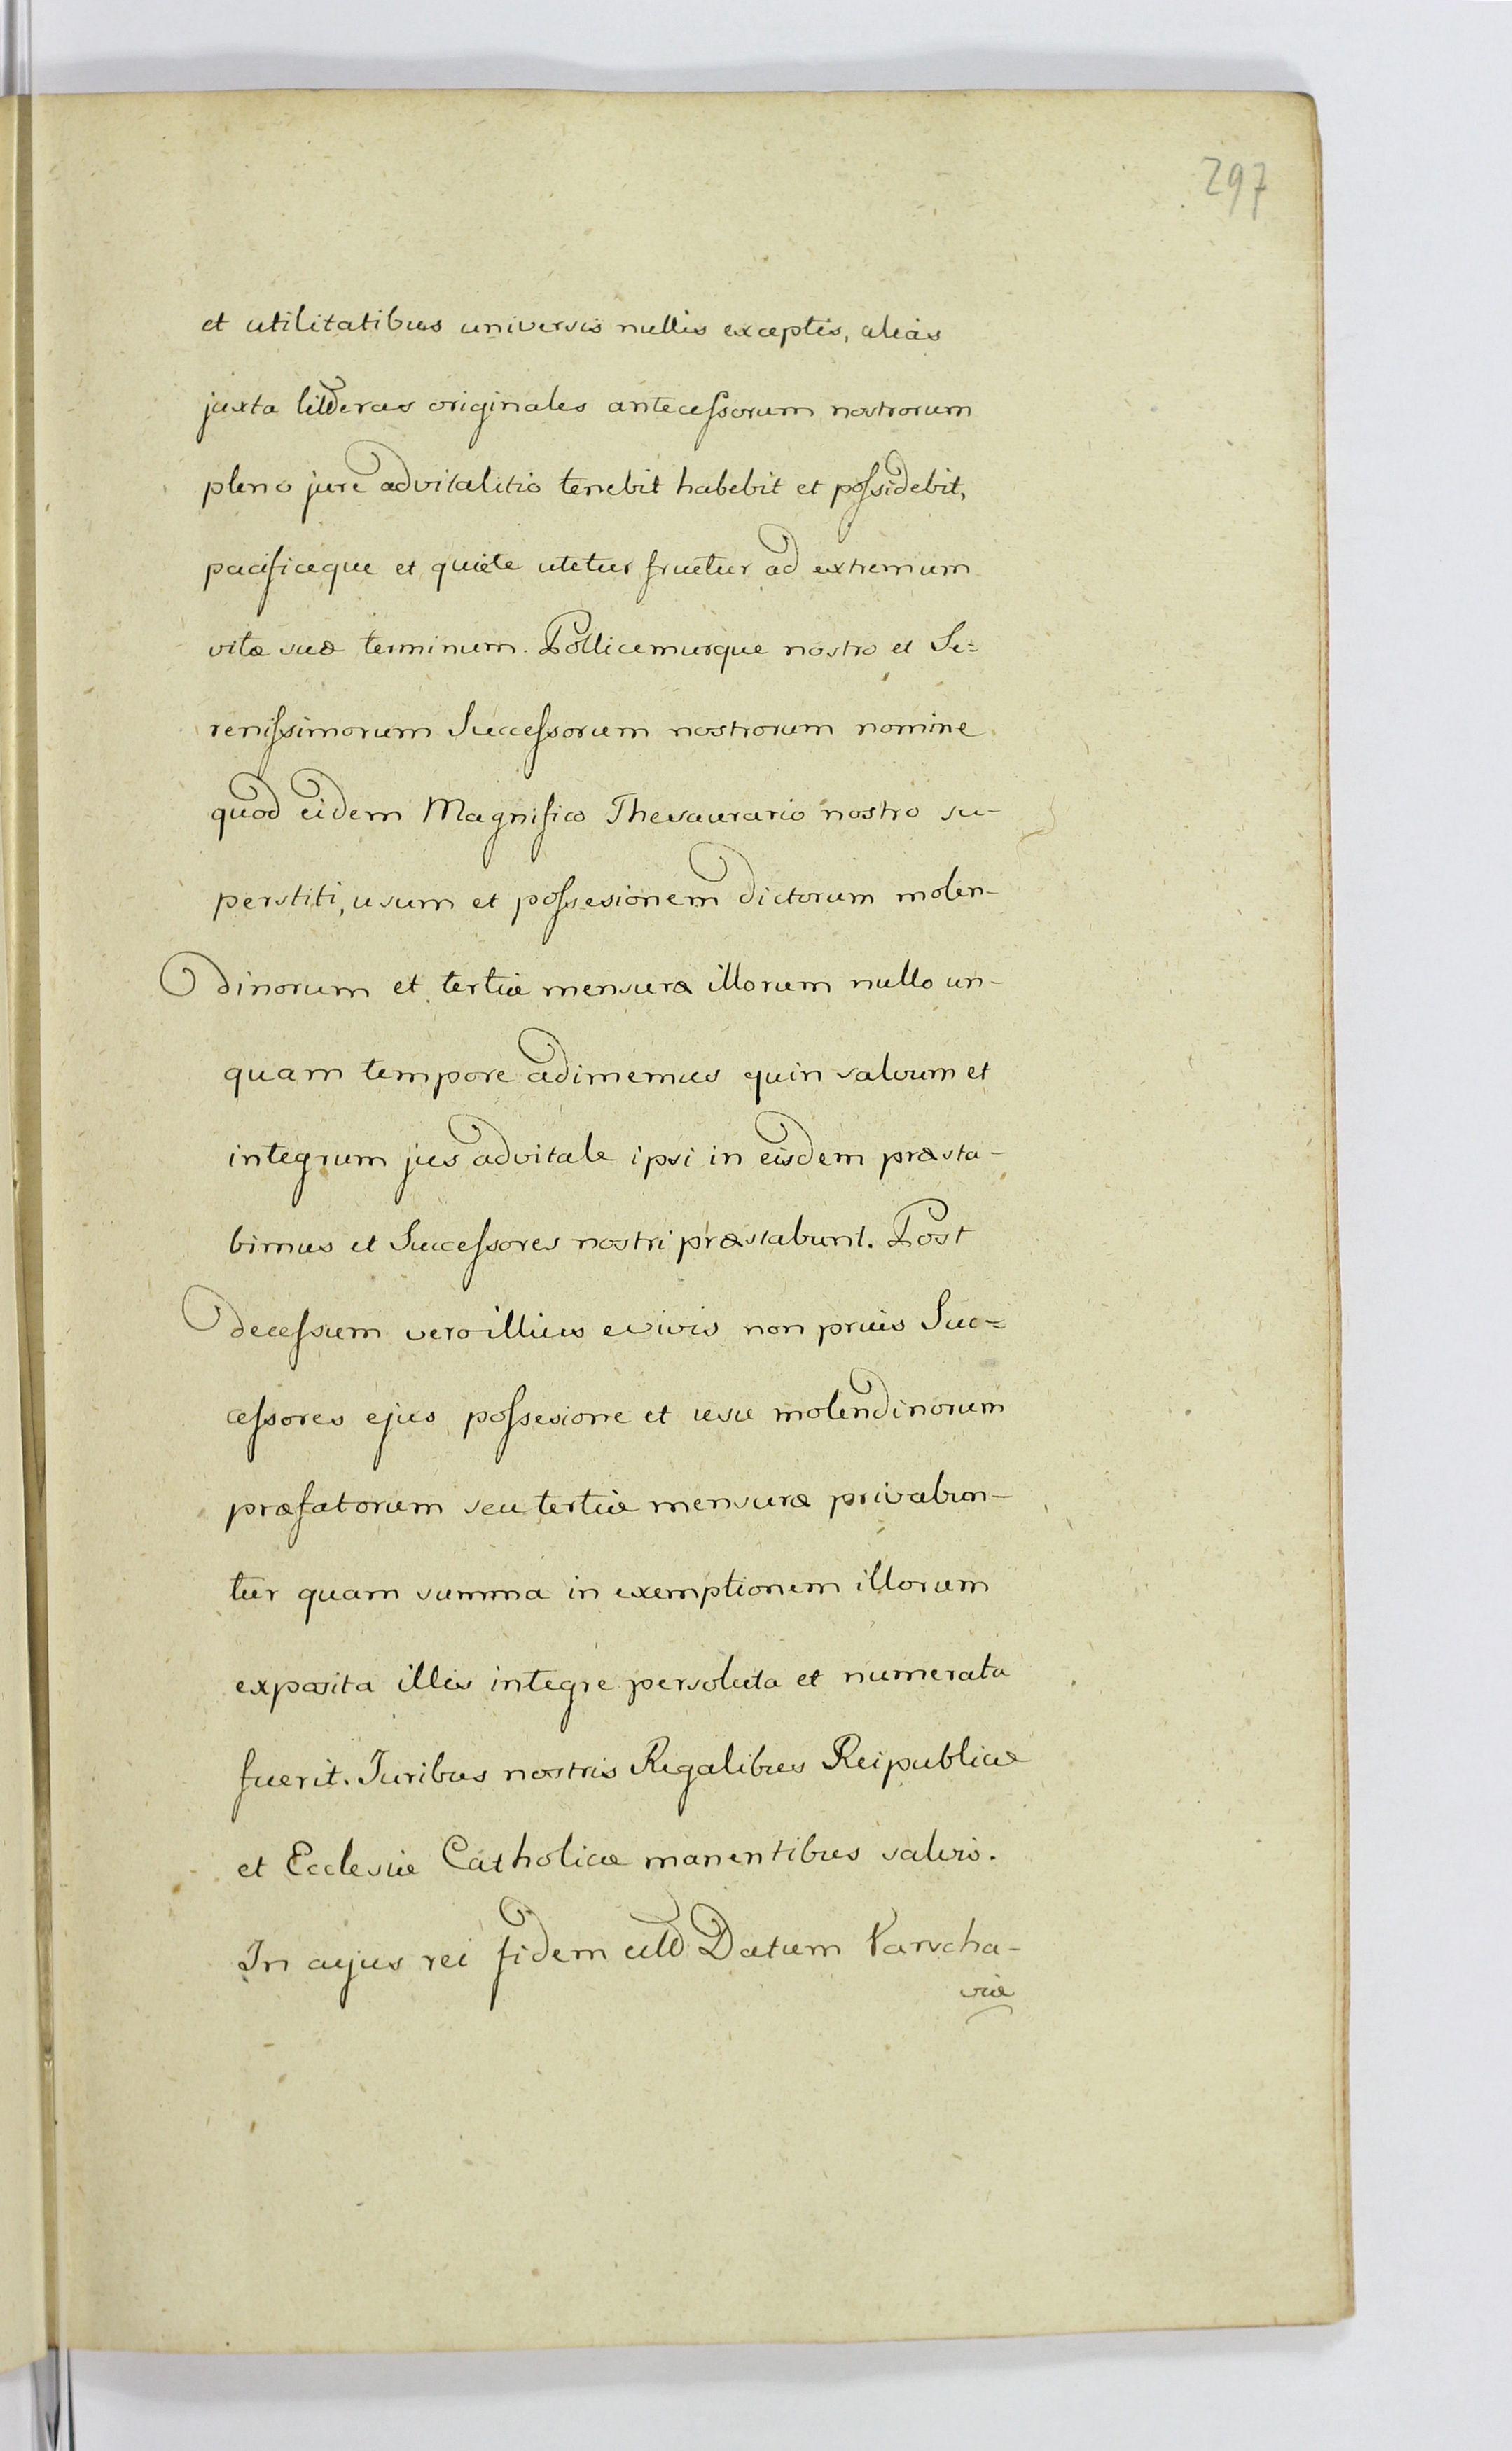 297
et utilitatibus universis nullis exceptis, alias
juxta litteras originales antecessorum nostrorum
pleno jure advitalitio tenebit habebit et possidebit,
pacificeque et quiete utetur fruetur ad extremum
vitæ suæ terminum. Pollicemurque nostro et Se=
renissimorum Successorum nostrorum nomine
quod eidem Magnifico Thesaurario nostro su-
perstiti, usum et possesionem dictorum molen-
dinorum et tertiæ mensuræ illorum nullo un-
quam tempore adimemus quin salvum et
integrum jus advitale ipsi in eisdem præsta-
bimus et Successores nostri præstabunt. Post
decessum vero illius e vivis non prius Suc=
cessores ejus possesione et usu molendinorum
præfatorum seu tertiæ mensuræ privabun-
tur quam summa in exemptionem illorum
exposita illis integre persoluta et numerata
fuerit. Juribus nostris Regalibus Reipublicæ
et Ecclesiæ Catholicæ manentibus salvis.
In cujus rei fidem Datum Varscha-
viæ